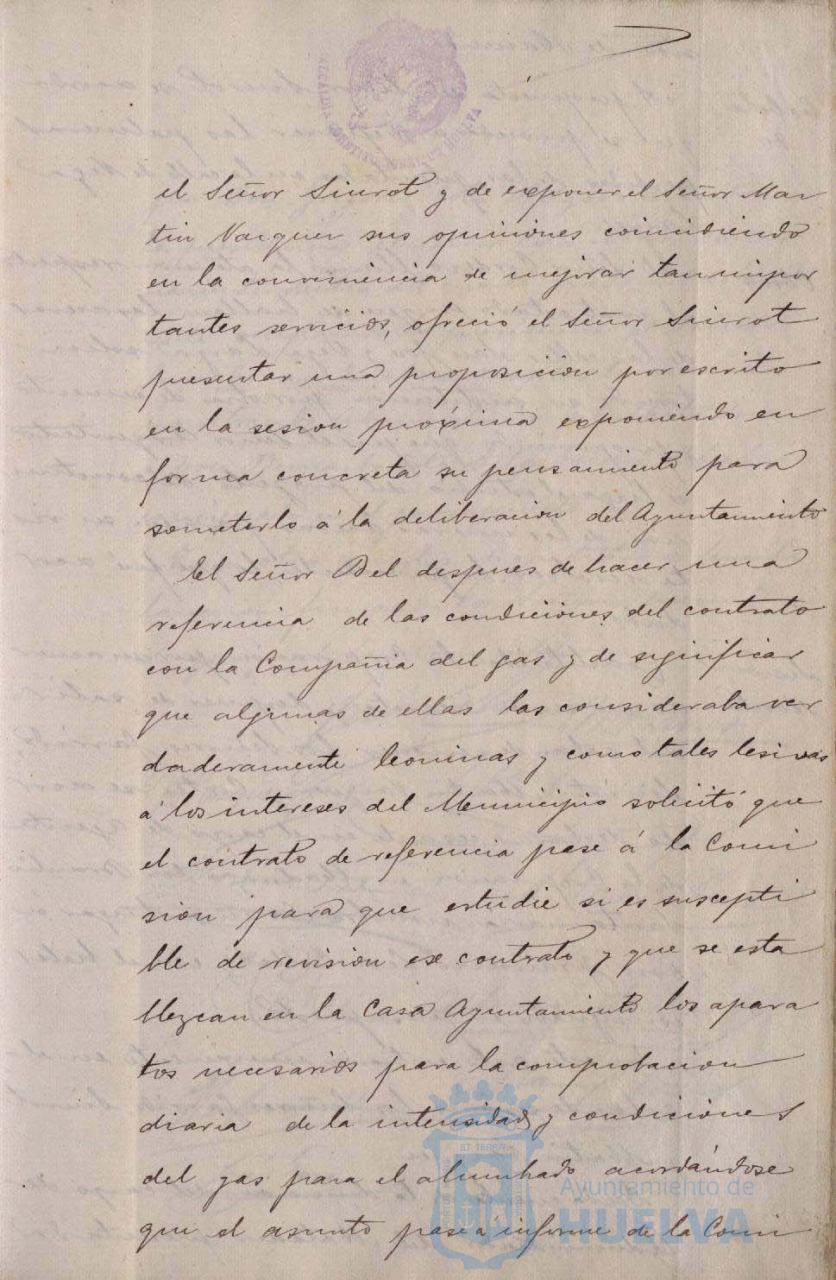 el Señor Siurot y de exponer el Señor Mar
tin Vazquez sus opiniones coincidiendo
en la conveniencia de mejorar tan impor
tantes servicios, ofreció el Señor Siurot
presentar una proposicion por escrito
en la sesion próxima exponiendo en
forma concreta su pensamiento para
someterlo á la deliberacion del Ayuntamiento
El Señor Bel despues de hacer una
referencia de las condiciones del contrato
con la Compañia del gas y de significar
que algunas de ellas las consideraba ver
daderamente leoninas y como tales lesivas
á los intereses del Municipio solicitó que
el contrato de referencia pase á la Comi
sion para que estudie si es suscepti
ble de revision ese contrato y que se esta
blezcan en la Casa Ayuntamiento los apara
tos necesarios para la comprobacion
diaria de la intensidad y condiciones
del gas para el alumbrado acordándose
que el asunto pase a informe de la Comi
Ayuntamiento de
HUELVA